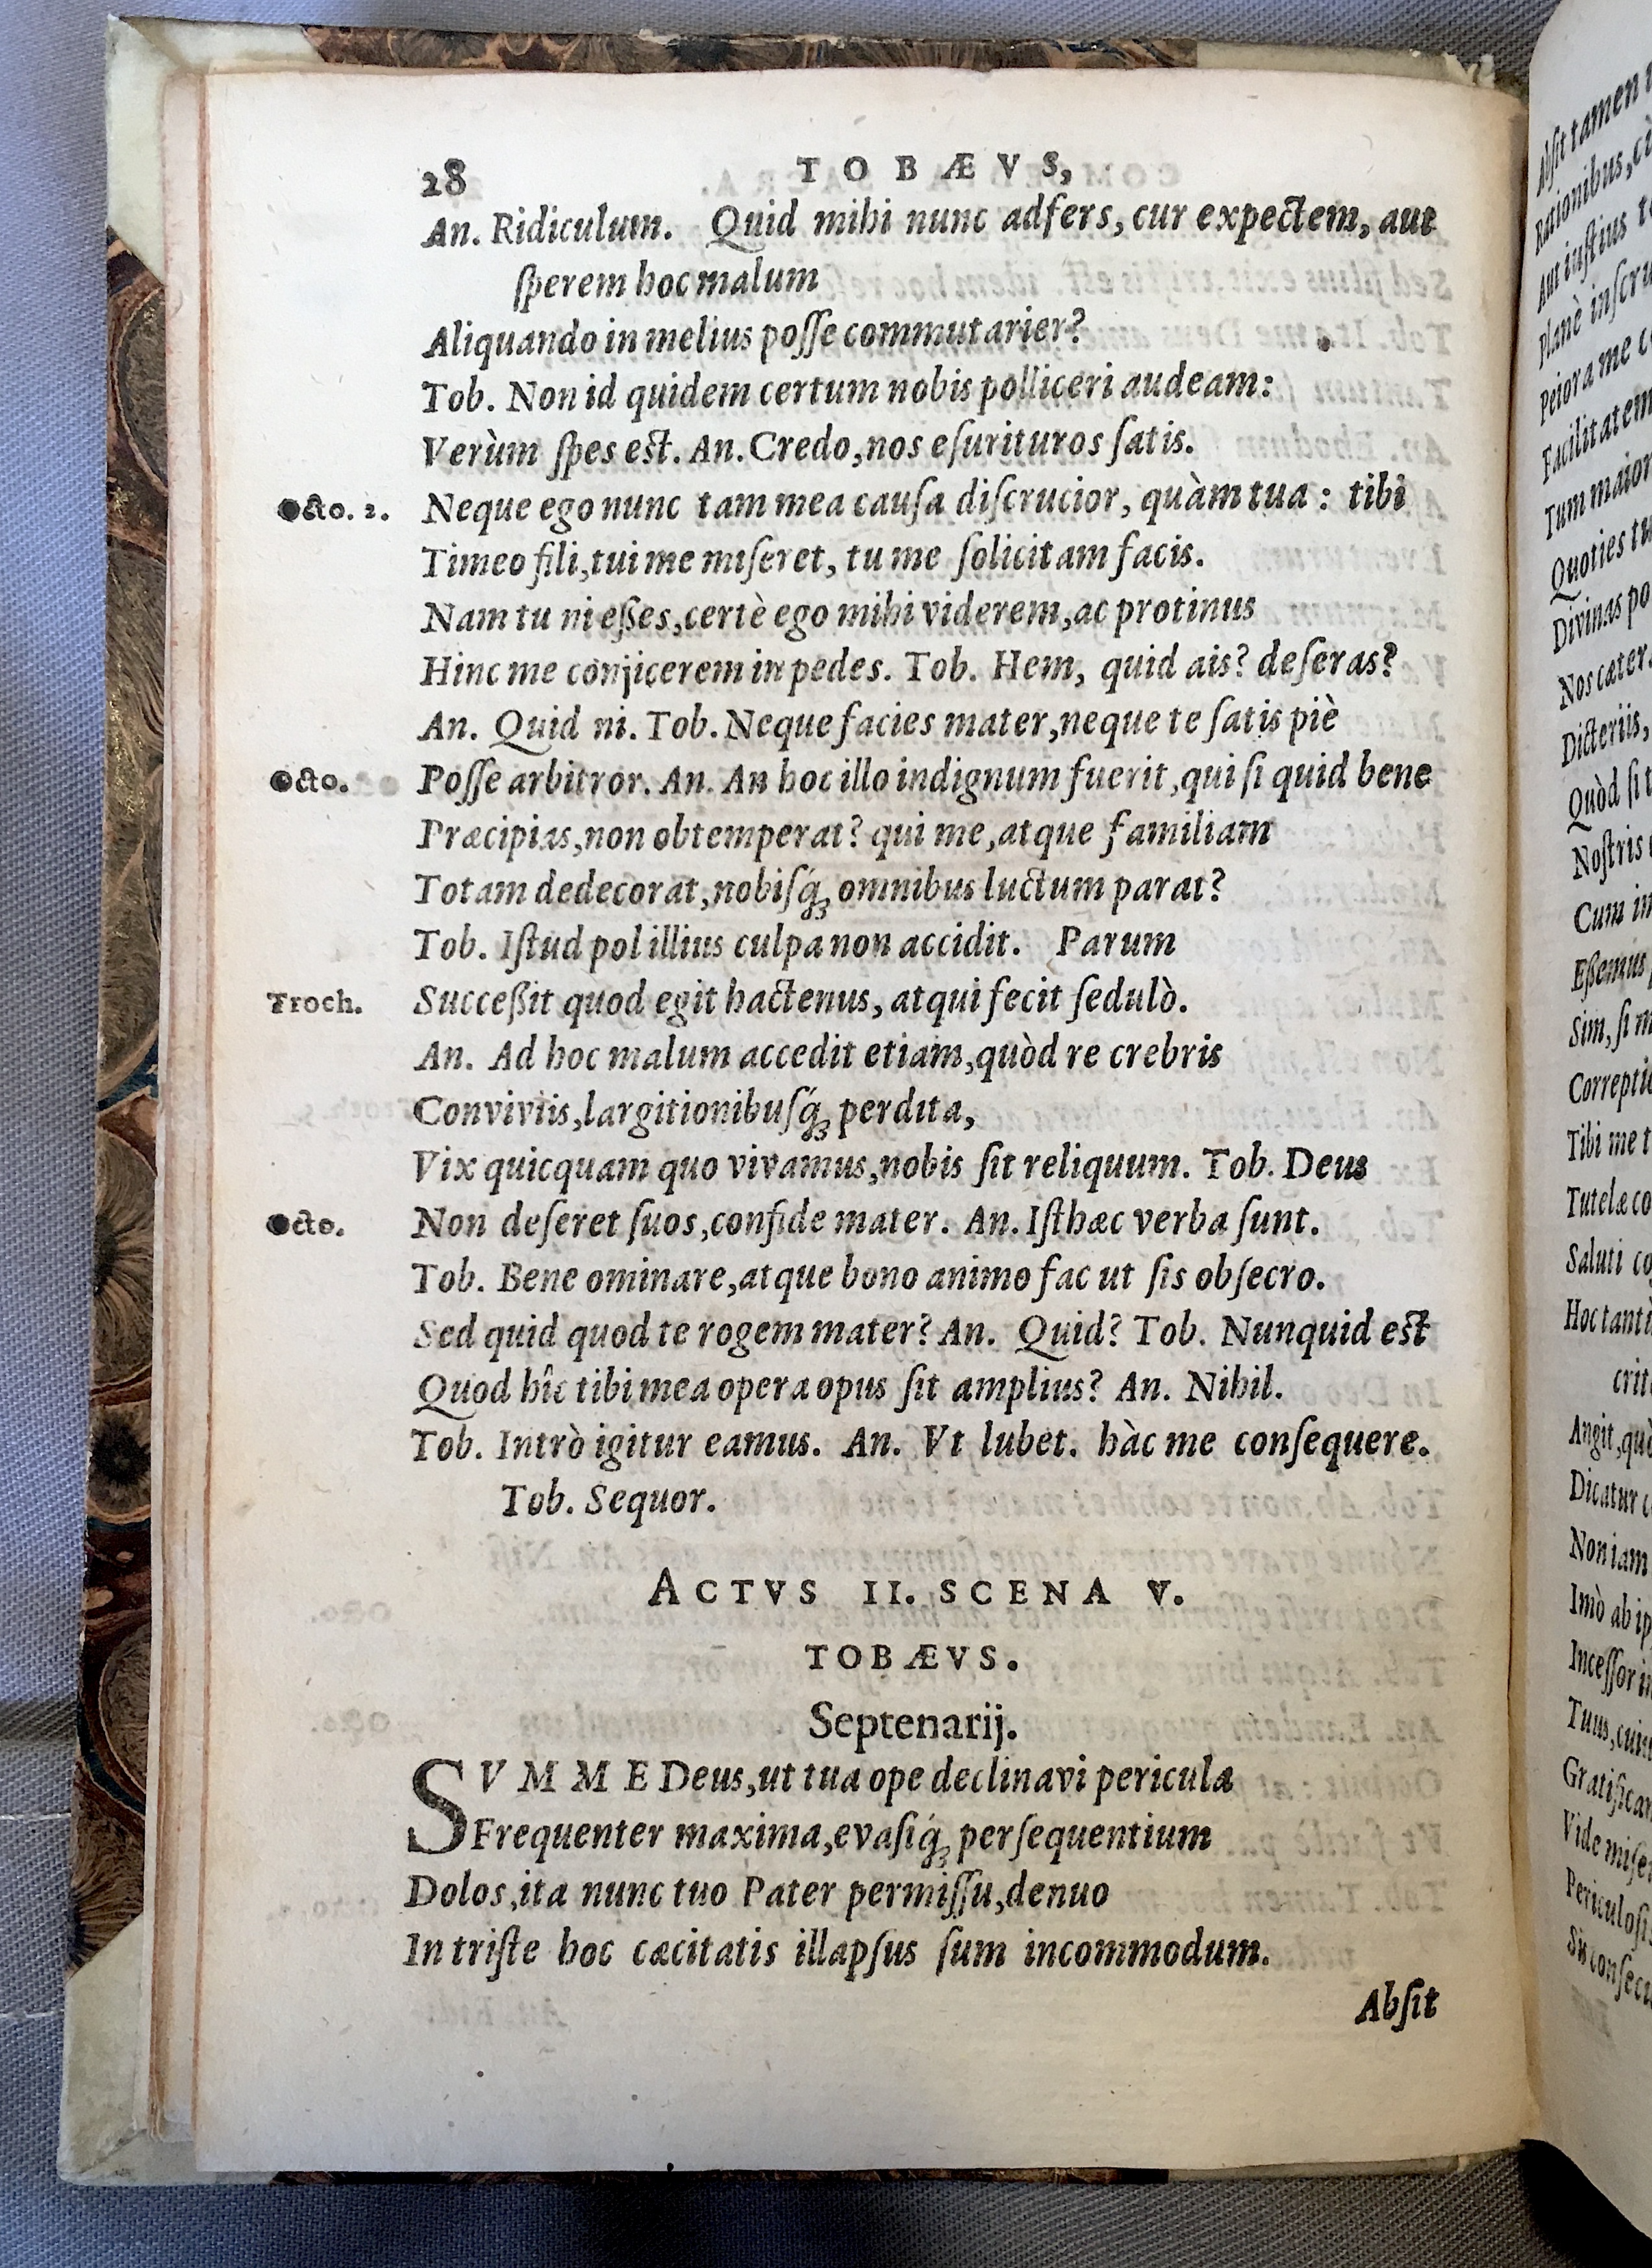 28 TOBÆVS,
An. Ridiculum. Quid mihi nunc adfers, cur expectem, aut
ſperem hoc malum
Aliquando in melius poſſe commutarier?
Tob. Non id quidem certum nobis polliceri audeam:
Verùm ſpes est. An. Credo, nos eſurituros ſatis.
Octo. 2. Neque ego nunc tam mea cauſa diſcrucior, quàm tua: tibi
Timeo fili, tui me miſeret, tu me ſolicitam facis.
Nam tu ni eſſes, certè ego mihi viderem, ac protinus
Hinc me conjicerem in pedes. Tob. Hem, quid ais? deſeras?
An. Quid ni. Tob. Neque facies mater, neque te ſatis piè
Octo. Poſſe arbitror. An. An hoc illo indignum fuerit, qui ſi quid bene
Præcipias, non obtemperat? qui me, atque familiam
Totam dedecorat, nobiſq́; omnibus luctum parat?
Tob. Iſtud pol illius culpa non accidit. Parum
Troch. Succeßit quod egit hactenus, atqui fecit ſedulò.
An. Ad hoc malum accedit etiam, quòd re crebris
Conviviis, largitionibuſq́; perdita,
Vix quicquam quo vivamus, nobis ſit reliquum. Tob. Deus
Octo. Non deſeret ſuos, confide mater. An. Iſthæc verba ſunt.
Tob. Bene ominare, atque bono animo fac ut ſis obſecro.
Sed quid quod te rogem mater? An. Quid? Tob. Nunquid est
Quod hîc tibi mea opera opus ſit amplius? An. Nihil.
Tob. Intrò igitur eamus. An. Vt lubet. hàc me conſequere.
Tob. Sequor.
ACTVS II. SCENA V.
TOBÆVS.
Septenarij.
SVMME Deus, ut tua ope declinavi pericula
Frequenter maxima, evaſiq́; perſequentium
Dolos, ita nunc tuo Pater permiſſu, denuo
In triſte hoc cæcitatis illapſus ſum incommodum.
Abſit
Abſit tamen
Rationibus,
Aut iuſtius
Planè
Peiora me
Facilitatem
Tum maior
Quoties
Divinas
Nos cæter
Dicteriis,
Quòd ſi
Noſtris
Cum
Eßemus
Sim, ſi
Tibi me
Tutelæ
Saluti
Hoc
Angit,
Dicatur
Non iam
Imò ab
Inceſſor
Tuus,
Vide